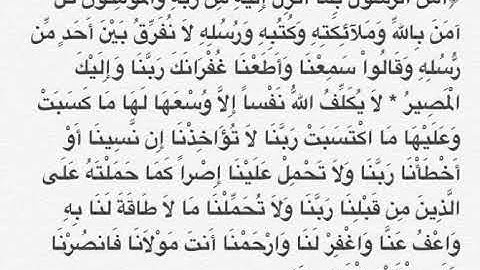 آمَنَ الرَّسُولُ بِمَا أُنزِلَ إِلَيْهِ مِن رَّبِّهِ وَالْمُؤْمِنُونَ كُلٌّ
آمَنَ بِاللَّهِ وَمَلآئِكَتِهِ وَكُتُبِهِ وَرُسُلِهِ لاَ نُفَرِّقُ بَيْنَ أَحَدٍ مِّن
رُّسُلِهِ وَقَالُواْ سَمِعْنَا وَأَطَعْنَا غُفْرَانَكَ رَبَّنَا وَإِلَيْكَ
الْمَصِيرُ * لاَ يُكَلِّفُ اللَّهُ نَفْساً إِلاَّ وُسْعَهَا لَهَا مَا كَسَبَتْ
وَعَلَيْهَا مَا اكْتَسَبَتْ رَبَّنَا لاَ تُؤَاخِذْنَا إِن نَّسِينَا أَوْ
أَخْطَأْنَا رَبَّنَا وَلاَ تَحْمِلْ عَلَيْنَا إِصْراً كَمَا حَمَلْتَهُ عَلَى
الَّذِينَ مِن قَبْلِنَا رَبَّنَا وَلاَ تُحَمِّلْنَا مَا لاَ طَاقَةَ لَنَا بِهِ
وَاعْفُ عَنَّا وَاغْفِرْ لَنَا وَارْحَمْنَا أَنتَ مَوْلاَنَا فَانصُرْنَا